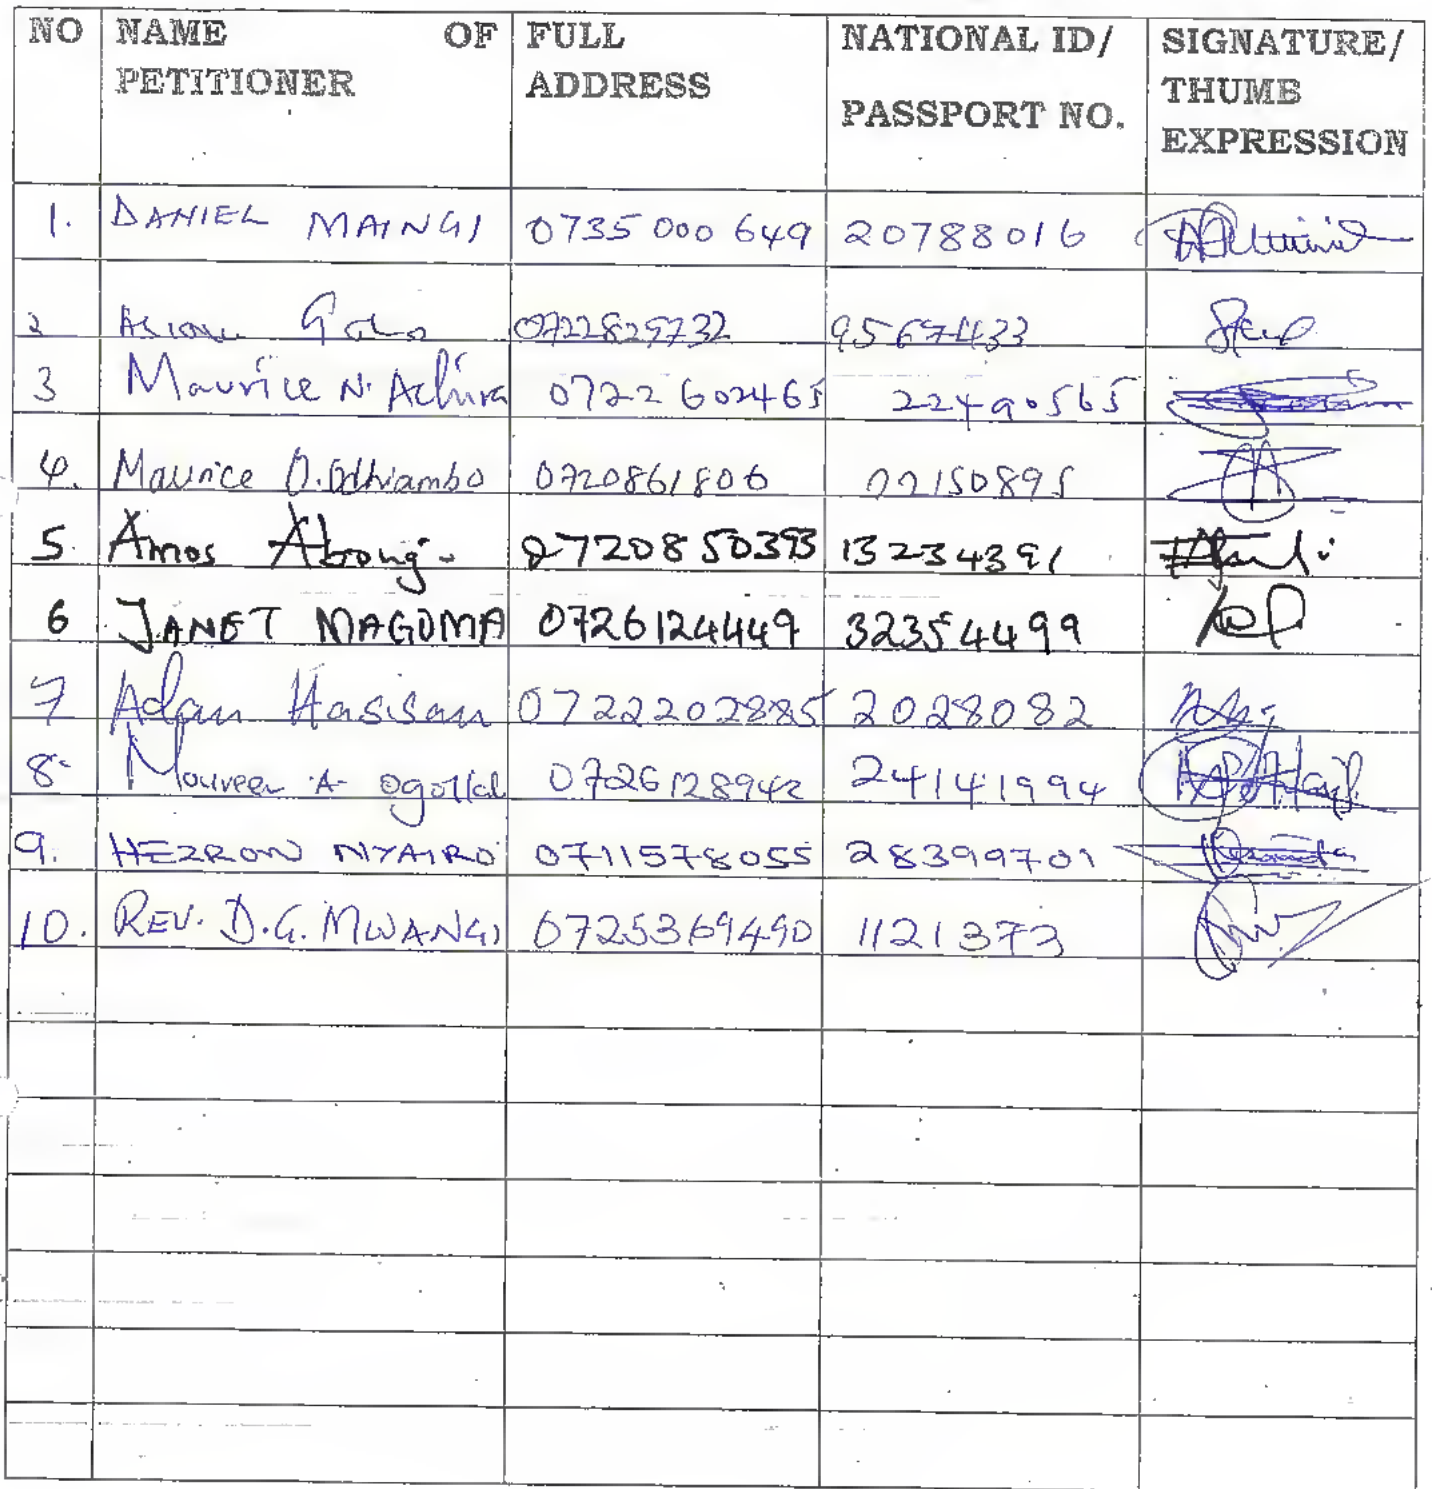 NO NAME OF PETITIONER FULL ADDRESS NATIONAL ID/ PASSPORT NO. SIGNATURE/ THUMB EXPRESSION
1. DANIEL MAINGI 0735 000 649 20788016
2 0722829732 95674433
3 Maurice N. Achira 0722 602465 22490565
4. Maurice O. Odhiambo 0720861806 22150895
5. Amos Abong - 13234391
6 JANET MAGOMA 0726124449 32354499
7 Adan Hassan 0722202885 2028082
8 Maureen A 0726128942 24141994
9. HEZRON NYAIRO 0711578055 28399701
10. REV. D.G. MWANGI 0725369490 1121373